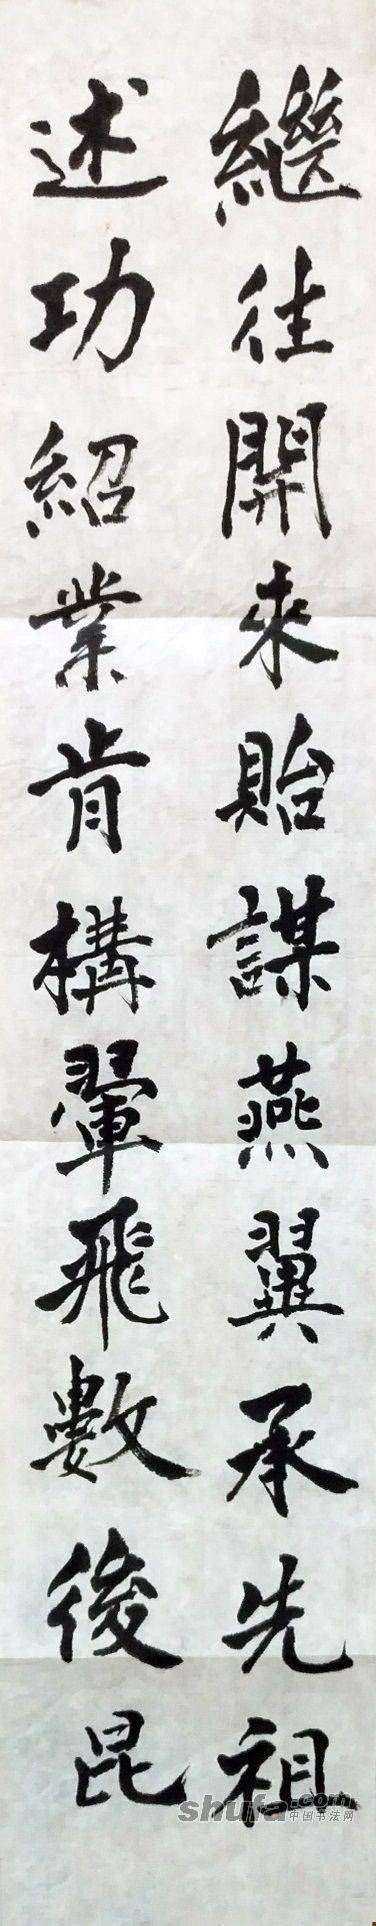 繼往開來貽謀燕翼承先祖
述功紹業肯構翬飛數後昆
shufa.com
中国书法网